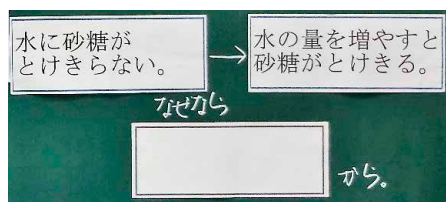 水に砂糖が
とけきらない。
水の量を増やすと
砂糖がとけきる。
なぜなら
から。